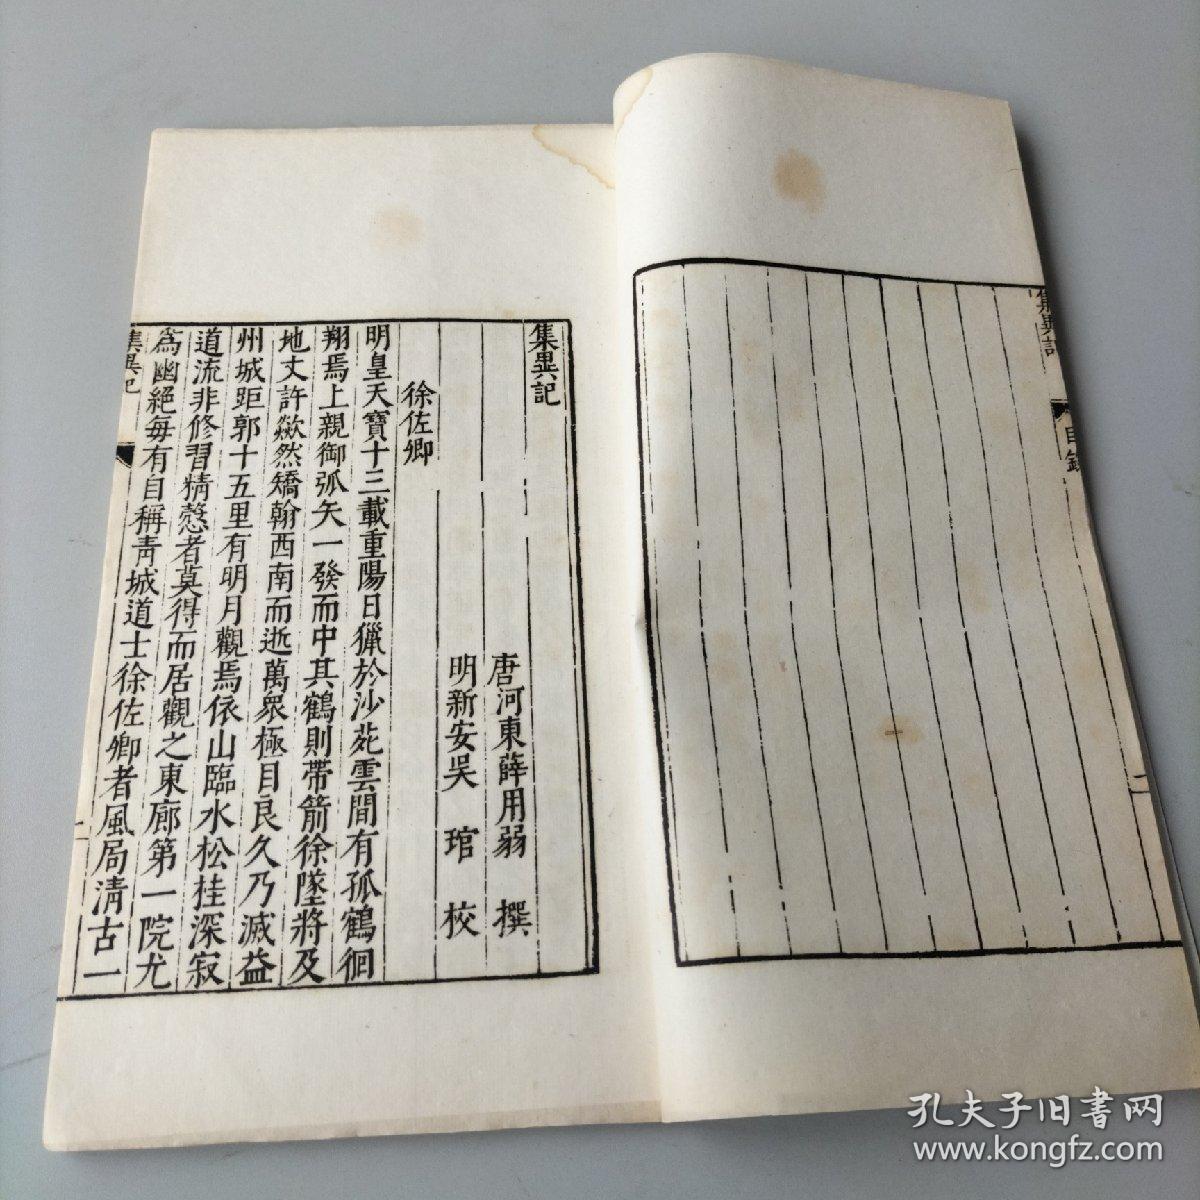 集異記
目錄
二
集異記
唐河東薛用弱 撰
明新安吳 琯 校
徐佐卿
明皇天寶十三載重陽日獵於沙苑雲間有孤鶴徊
翔焉上親御弧矢一發而中其鶴則帶箭徐墜將及
地丈許歘然矯翰西南而逝萬衆極目良久乃滅益
州城距郭十五里有明月觀焉依山臨水松桂深寂
道流非修習精愨者莫得而居觀之東廊第一院尤
爲幽絕每有自稱靑城道士徐佐卿者風局淸古一
集異記
一
孔夫子旧书网
www.kongfz.com